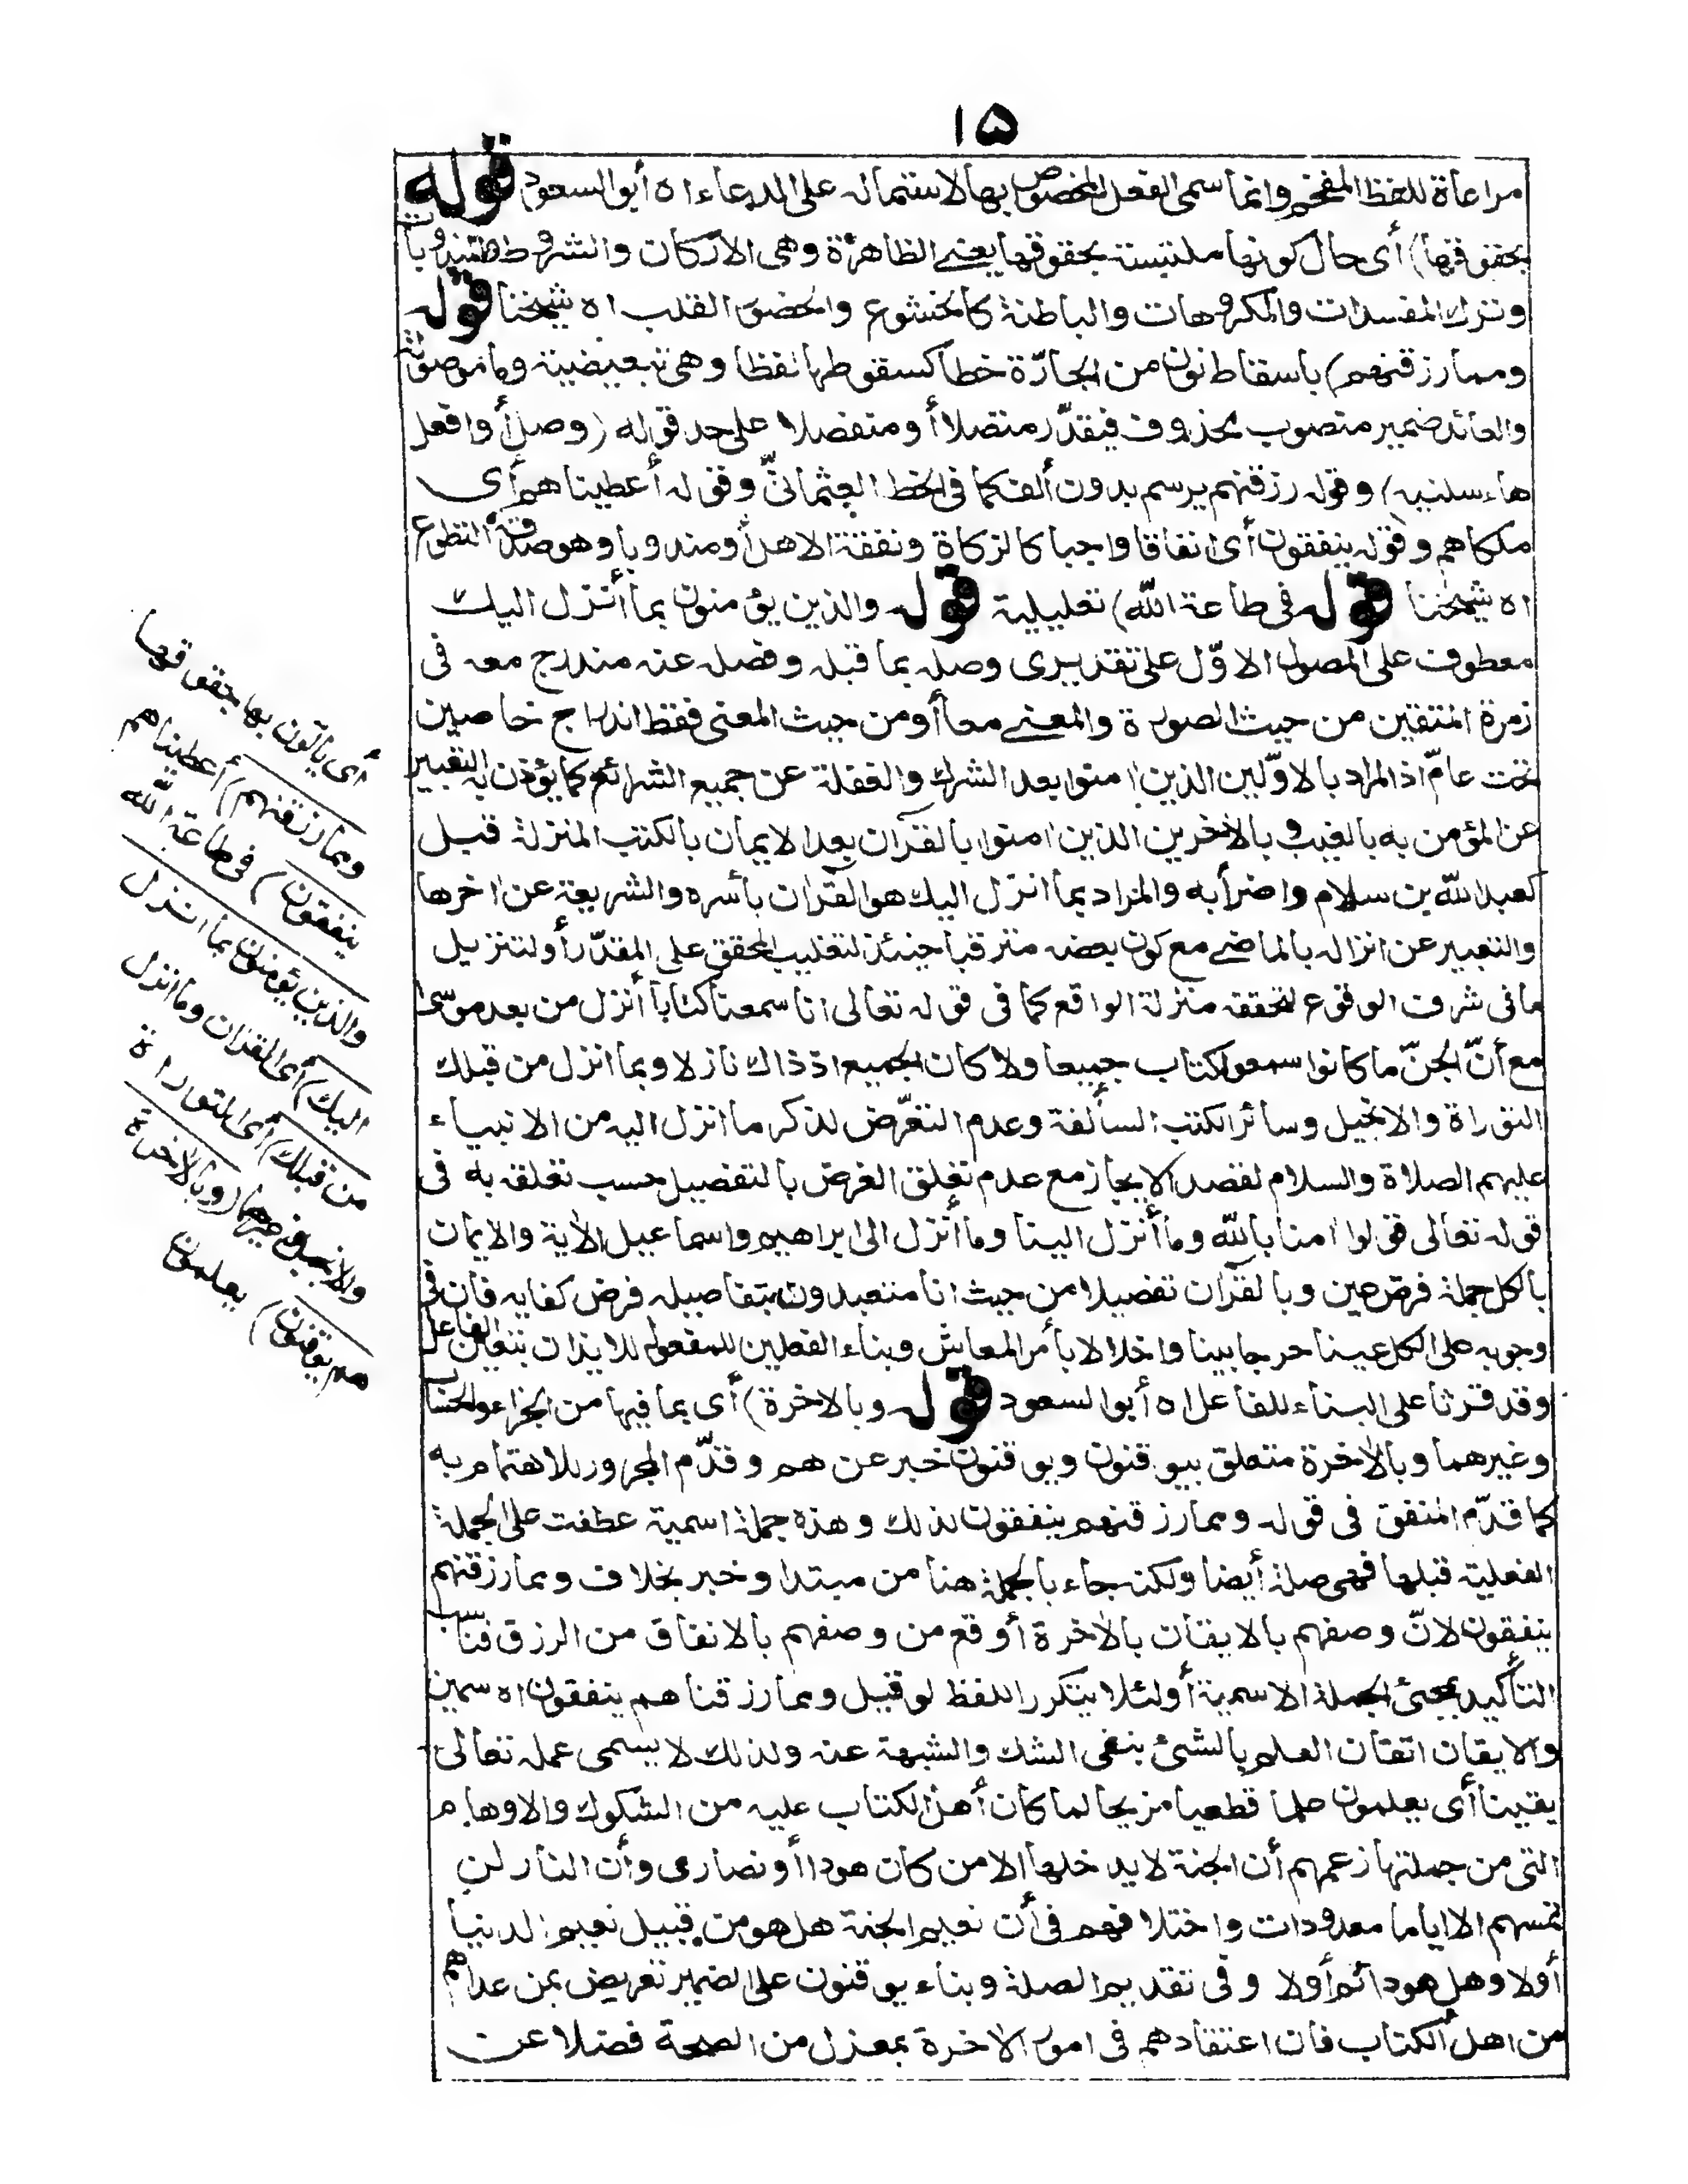 ١٥
مراعاة للفظ المفخم وانما سمى الفعل المخصوص بها لاشتماله على الدعاء اه أبو السعود قوله
بحقوقها) أى حال كونها ملتبسة بحقوقها يعنى الظاهرة وهى الاركان والشروط والمندوبات
وترك المفسدات والمكروهات والباطنة كالخشوع والحضور القلب اه شيخنا قوله
ومما رزقنهم) باسقاط نون من الجارّة خطا كسقوطها لفظا وهى تبعيضية وما موصولة
والعائد ضمير منصوب محذوف فيقدّر متصلا أو منفصلا على حد قوله (وصل أو افصل
هاء سلنيه) وقوله رزقنهم يرسم بدون ألف كما فى الخط العثمانىّ وقوله أعطيناهم أى
ملكاهم وقوله ينفقون أى انفاقا واجبا كالزكاة ونفقة الاهل أو مندوبا وهو صدقة التطوع
اه شيخنا قوله فى طاعة الله) تعليلية قوله والذين يؤمنون بما أنزل اليك
معطوف على الموصول الاوّل على تقديرى وصله بما قبله وفصله عنه مندرج معه فى
زمرة المتقين من حيث الصورة والمعنى معا أو من حيث المعنى فقط اندراج خاصين
تحت عامّ اذ المراد بالاوّلين الذين امنوا بعد الشرك والغفلة عن جميع الشرائع كما يؤذن به التعبير
عن المؤمن به بالغيب وبالاخرين الذين امنوا بالقرآن بعد الايمان بالكتب المنزلة قبل
كعبد الله بن سلام واضرابه والمراد بما انزل اليك هو القرآن بأسره والشريعة عن اخرها
والتعبير عن انزاله بالماضى مع كون بعضه مترقبا حينئذ لتغليب المحقق على المقدّر أو لتنزيل
ما فى شرف الوقوع لتحققه منزلة الواقع كما فى قوله تعالى انا سمعنا كتابا أنزل من بعد موسى
مع أنّ الجنّ ما كانوا سمعوا الكتاب جميعا ولا كان الجميع اذ ذاك نازلا وبما انزل من قبلك
التوراة والانجيل وسائر الكتب السالفة وعدم التعرّض لذكر ما انزل اليه من الانبياء
عليهم الصلاة والسلام لقصد الايجاز مع عدم تعلق الغرض بالتفصيل حسب تعلقه به فى
قوله تعالى قولوا امنا بالله وما أنزل الينا وما أنزل الى ابراهيم واسماعيل الآية والايمان
بالكل جملة فرض عين وبالقرآن تفصيلا من حيث انا متعبدون بتفاصيله فرض كفايه فان فى
وجوبه على الكل عينا حرجا بينا واخلالا بأمر المعاش وبناء الفعلين للمفعول للايذان بتعين الفاعل
وقد قرئا على البناء للفاعل اه أبو السعود قوله وبالاخرة) أى بما فيها من الجزاء والحساب
وغيرهما وبالآخرة متعلق بيوقنون ويوقنون خبر عن هم وقدّم المجرور للاهتمام به
كما قدّم المنفق فى قوله ومما رزقنهم ينفقون لذلك وهذه جملة اسمية عطفت على الجملة
الفعلية قبلها فهى صلة أيضا ولكنه جاء بالجملة هنا من مبتدا وخبر بخلاف ومما رزقنهم
ينفقون لانّ وصفهم بالايقان بالآخرة أوقع من وصفهم بالانفاق من الرزق فناسب
التأكيد بمجئ الجملة الاسمية أو لئلا يتكرر اللفظ لو قيل ومما رزقناهم ينفقون اه سمين
والايقان اتقان العلم بالشئ بنفى الشك والشبهة عنه ولذلك لا يسمى عمله تعالى
يقينا أى يعلمون علما قطعيا مزيحا لما كان أهل الكتاب عليه من الشكوك والاوهام
التى من جملتها زعمهم أن الجنة لا يدخلها الا من كان هودا أو نصارى وأن النار لن
تمسهم الا اياما معدودات واختلافهم فى أن نعيم الجنة هل هو من قبيل نعيم الدنيا
أولا وهل هو دائم أولا وفى تقديم الصلة وبناء يوقنون على الضمير تعريض بمن عداهم
من اهل الكتاب فان اعتقادهم فى امور الآخرة بمعزل من الصحة فضلا عن
أى يأتون بها بحقوقها
ومما رزقنهم) أعطيناهم
ينفقون) فى طاعة الله
والذين يؤمنون بما انزل
اليك) أى القرآن وما انزل
من قبلك) أى التوراة
والانجيل وغيرهما (وبالآخرة
هم يوقنون) يعلمون